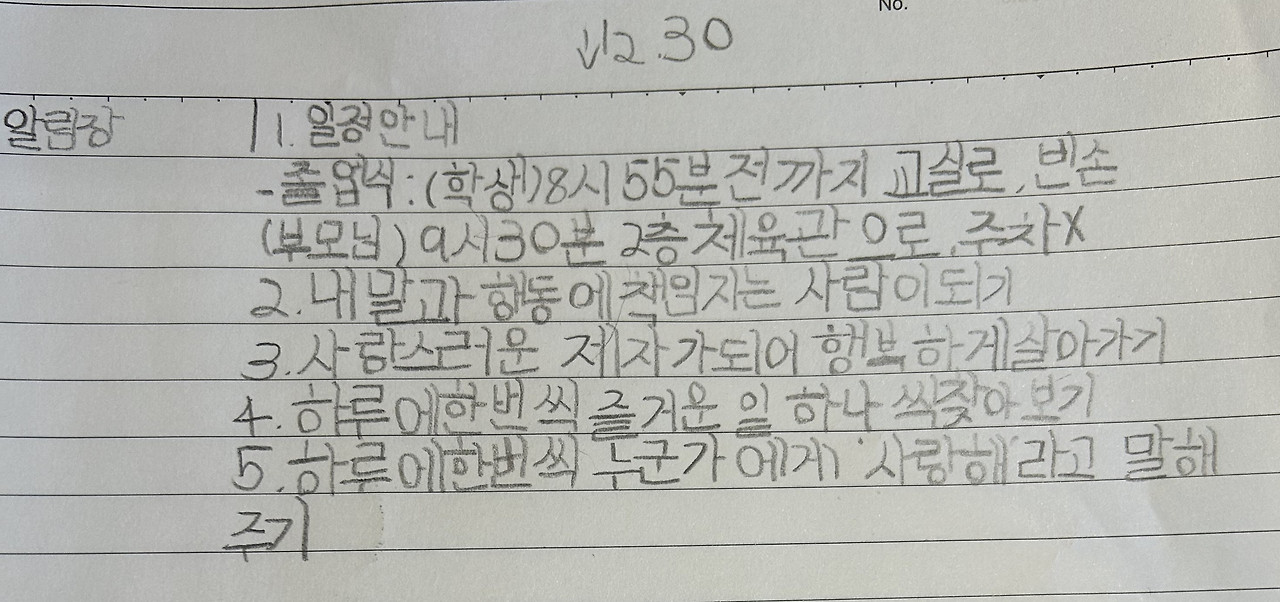 No.
↓12.30
알림장 1. 일정안내
-졸업식 : (학생)8시 55분전까지 교실로, 빈손
(부모님) 9시30분 2층체육관으로, 주차X
2. 내말과 행동에책임지는 사람이되기
3. 사랑스러운 제자가되어 행복하게살아가기
4. 하루에한번씩 즐거운 일 하나 씩찾아보기
5. 하루에한번씩 누군가에게 '사랑해'라고 말해
주기